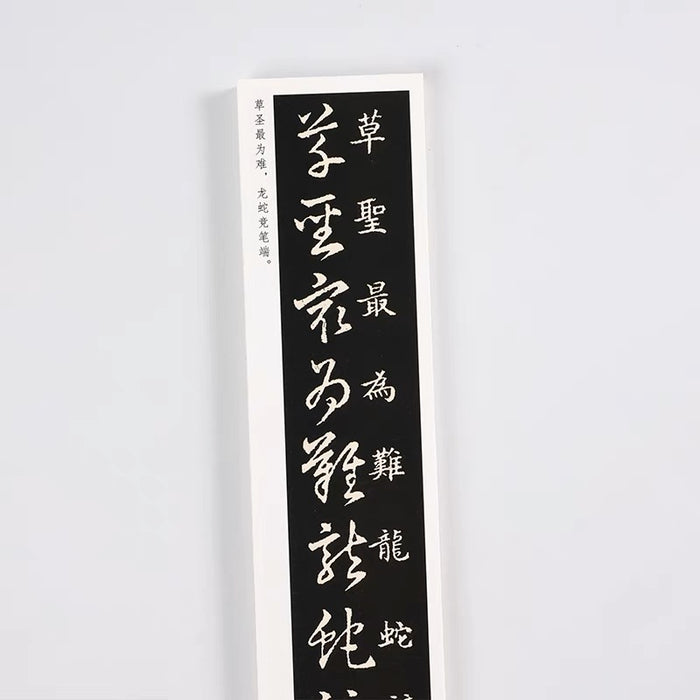 草聖最為難龍蛇
草聖最為難龍蛇
草圣最为难，龙蛇竞笔端。